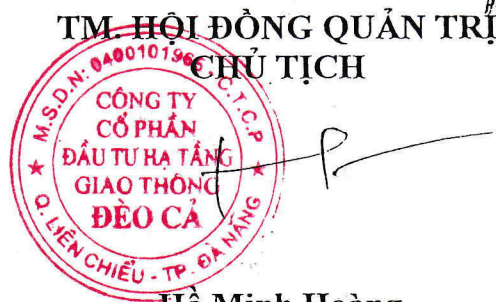 TM. HỘI ĐỒNG QUẢN TRỊ
CHỦ TỊCH
M.S.D.N: 0400101965 - C.T.C.P
CÔNG TY
CỔ PHẦN
ĐẦU TƯ HẠ TẦNG
GIAO THÔNG
ĐÈO CẢ
Q. LIÊN CHIỂU - TP. ĐÀ NẴNG
Hồ Minh Hoàng